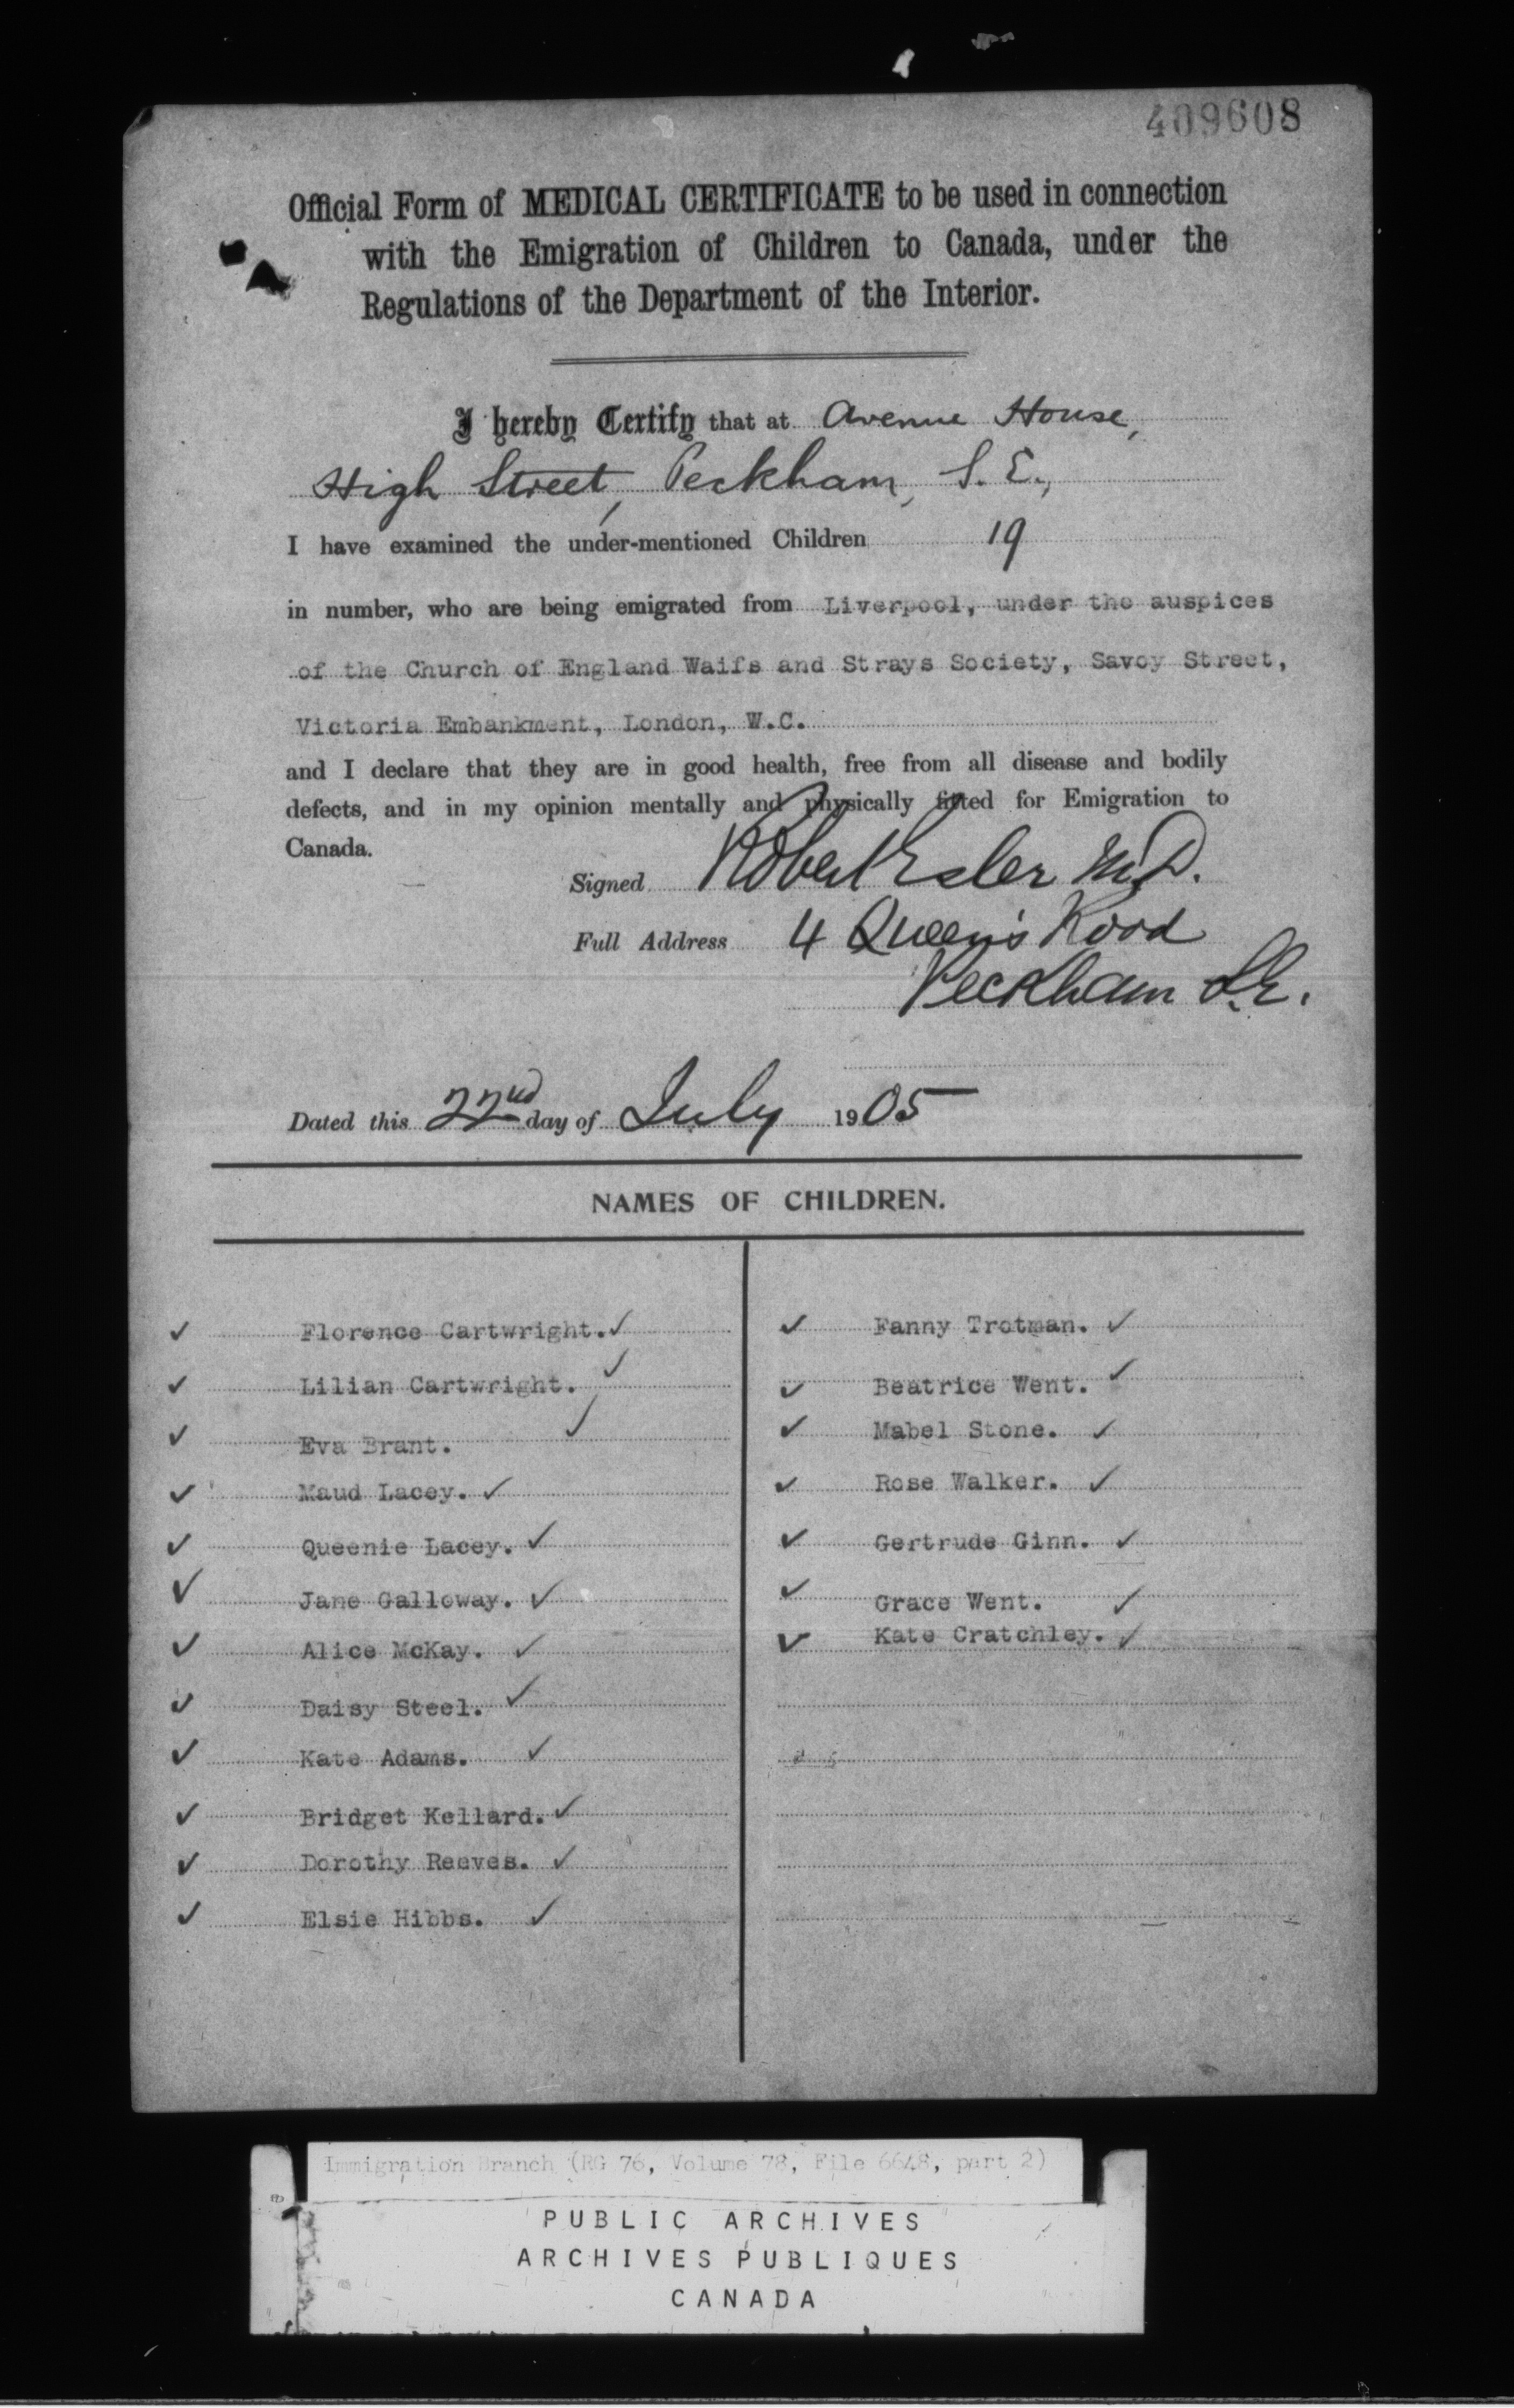 409608
Official Form of MEDICAL CERTIFICATE to be used in connection
with the Emigration of Children to Canada, under the
Regulations of the Department of the Interior.
I hereby Certify that at Avenue House,
High Street, Peckham, S. E.,
I have examined the under-mentioned Children 19
in number, who are being emigrated from Liverpool, under the auspices
of the Church of England Waifs and Strays Society, Savoy Street,
Victoria Embankment, London, W.C.
and I declare that they are in good health, free from all disease and bodily
defects, and in my opinion mentally and physically fitted for Emigration to
Canada.
Signed Robert Esler M.D.
Full Address 4 Queen's Road
Peckham S.E.
Dated this 22nd day of July 1905
NAMES OF CHILDREN.
✓ Florence Cartwright. ✓
✓ Lilian Cartwright. ✓
✓ Eva Brant. ✓
✓ Maud Lacey. ✓
✓ Queenie Lacey. ✓
✓ Jane Galloway. ✓
✓ Alice McKay. ✓
✓ Daisy Steel. ✓
✓ Kate Adams. ✓
✓ Bridget Kellard. ✓
✓ Dorothy Reeves. ✓
✓ Elsie Hibbs. ✓
✓ Fanny Trotman. ✓
✓ Beatrice Went. ✓
✓ Mabel Stone. ✓
✓ Rose Walker. ✓
✓ Gertrude Ginn. ✓
✓ Grace Went. ✓
✓ Kate Cratchley. ✓
Immigration Branch (RG 76, Volume 78, File 6648, part 2)
PUBLIC ARCHIVES
ARCHIVES PUBLIQUES
CANADA